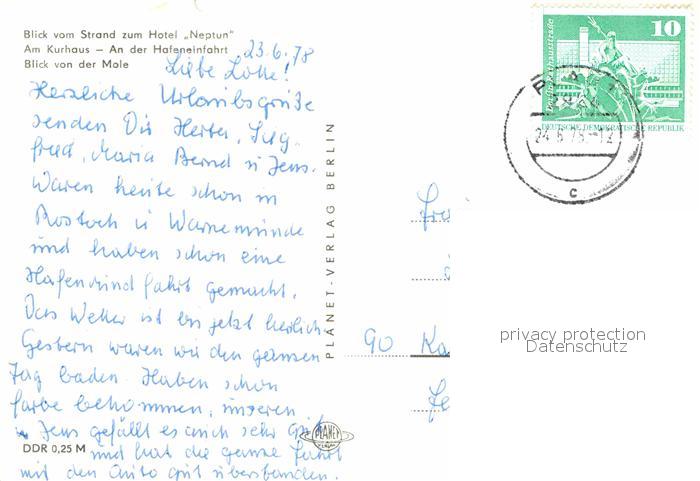 Blick vom Strand zum Hotel „Neptun“
Am Kurhaus – An der Hafeneinfahrt
Blick von der Mole
23.6.78
Liebe Lotte!
Herzliche Urlaubsgrüße
senden Dir Herta, Sieg-
fried, Maria Bernd u Jens.
Waren heute schon in
Rostock u Warnemünde
und haben schon eine
Hafenrundfahrt gemacht.
Das Wetter ist bis jetzt herrlich.
Gestern waren wir den ganzen
Tag baden. Haben schon
Farbe bekommen, unseren
Jens gefällt es auch sehr gut
und hat die ganze Fahrt
mit den Auto gut überstanden.
DDR 0,25 M
PLANET-VERLAG BERLIN
PLANET
10
DEUTSCHE DEMOKRATISCHE REPUBLIK
24.6.78-12
c
90 Ka
privacy protection
Datenschutz